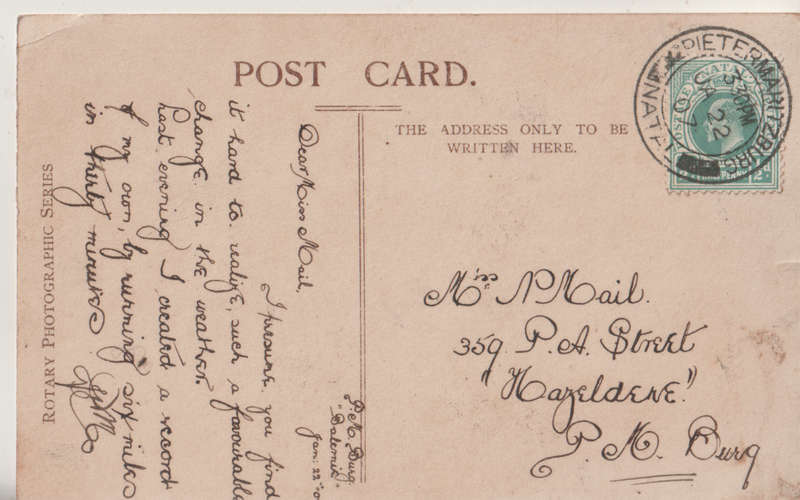 POST CARD.
THE ADDRESS ONLY TO BE
WRITTEN HERE.
ROTARY PHOTOGRAPHIC SERIES
PIETERMARITZBURG
NATAL
3.30 PM
JA 22
07
NATAL
P.M. Burg.
"Dalemik"
Jan: 22nd
Dear Miss Mail,
I presume you find
it hard to realize, such a favourable
change in the weather.
Last evening I created a record
of my own, by running six miles
in thirty minutes
Miss N Mail.
359. P.A. Street
"Hazeldene."
P.M. Burg